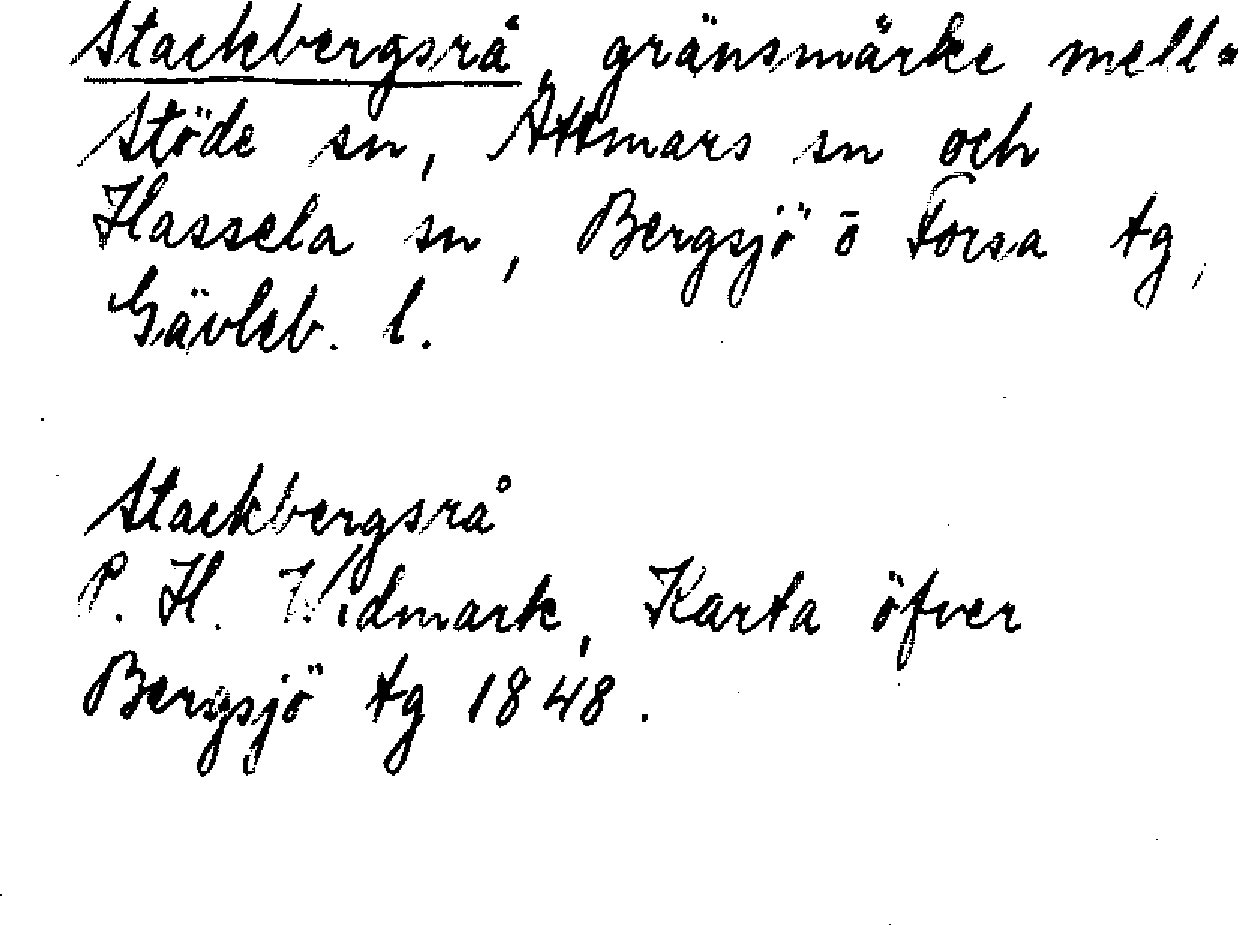 Stackbergsrå, gränsmärke mell.
Stöde sn, Attmars sn och
Hassela sn, Bergsjö o Forsa tg,
Gävleb. l.
Stackbergsrå
P. H. Widmark, Karta öfver
Bergsjö tg 1848.